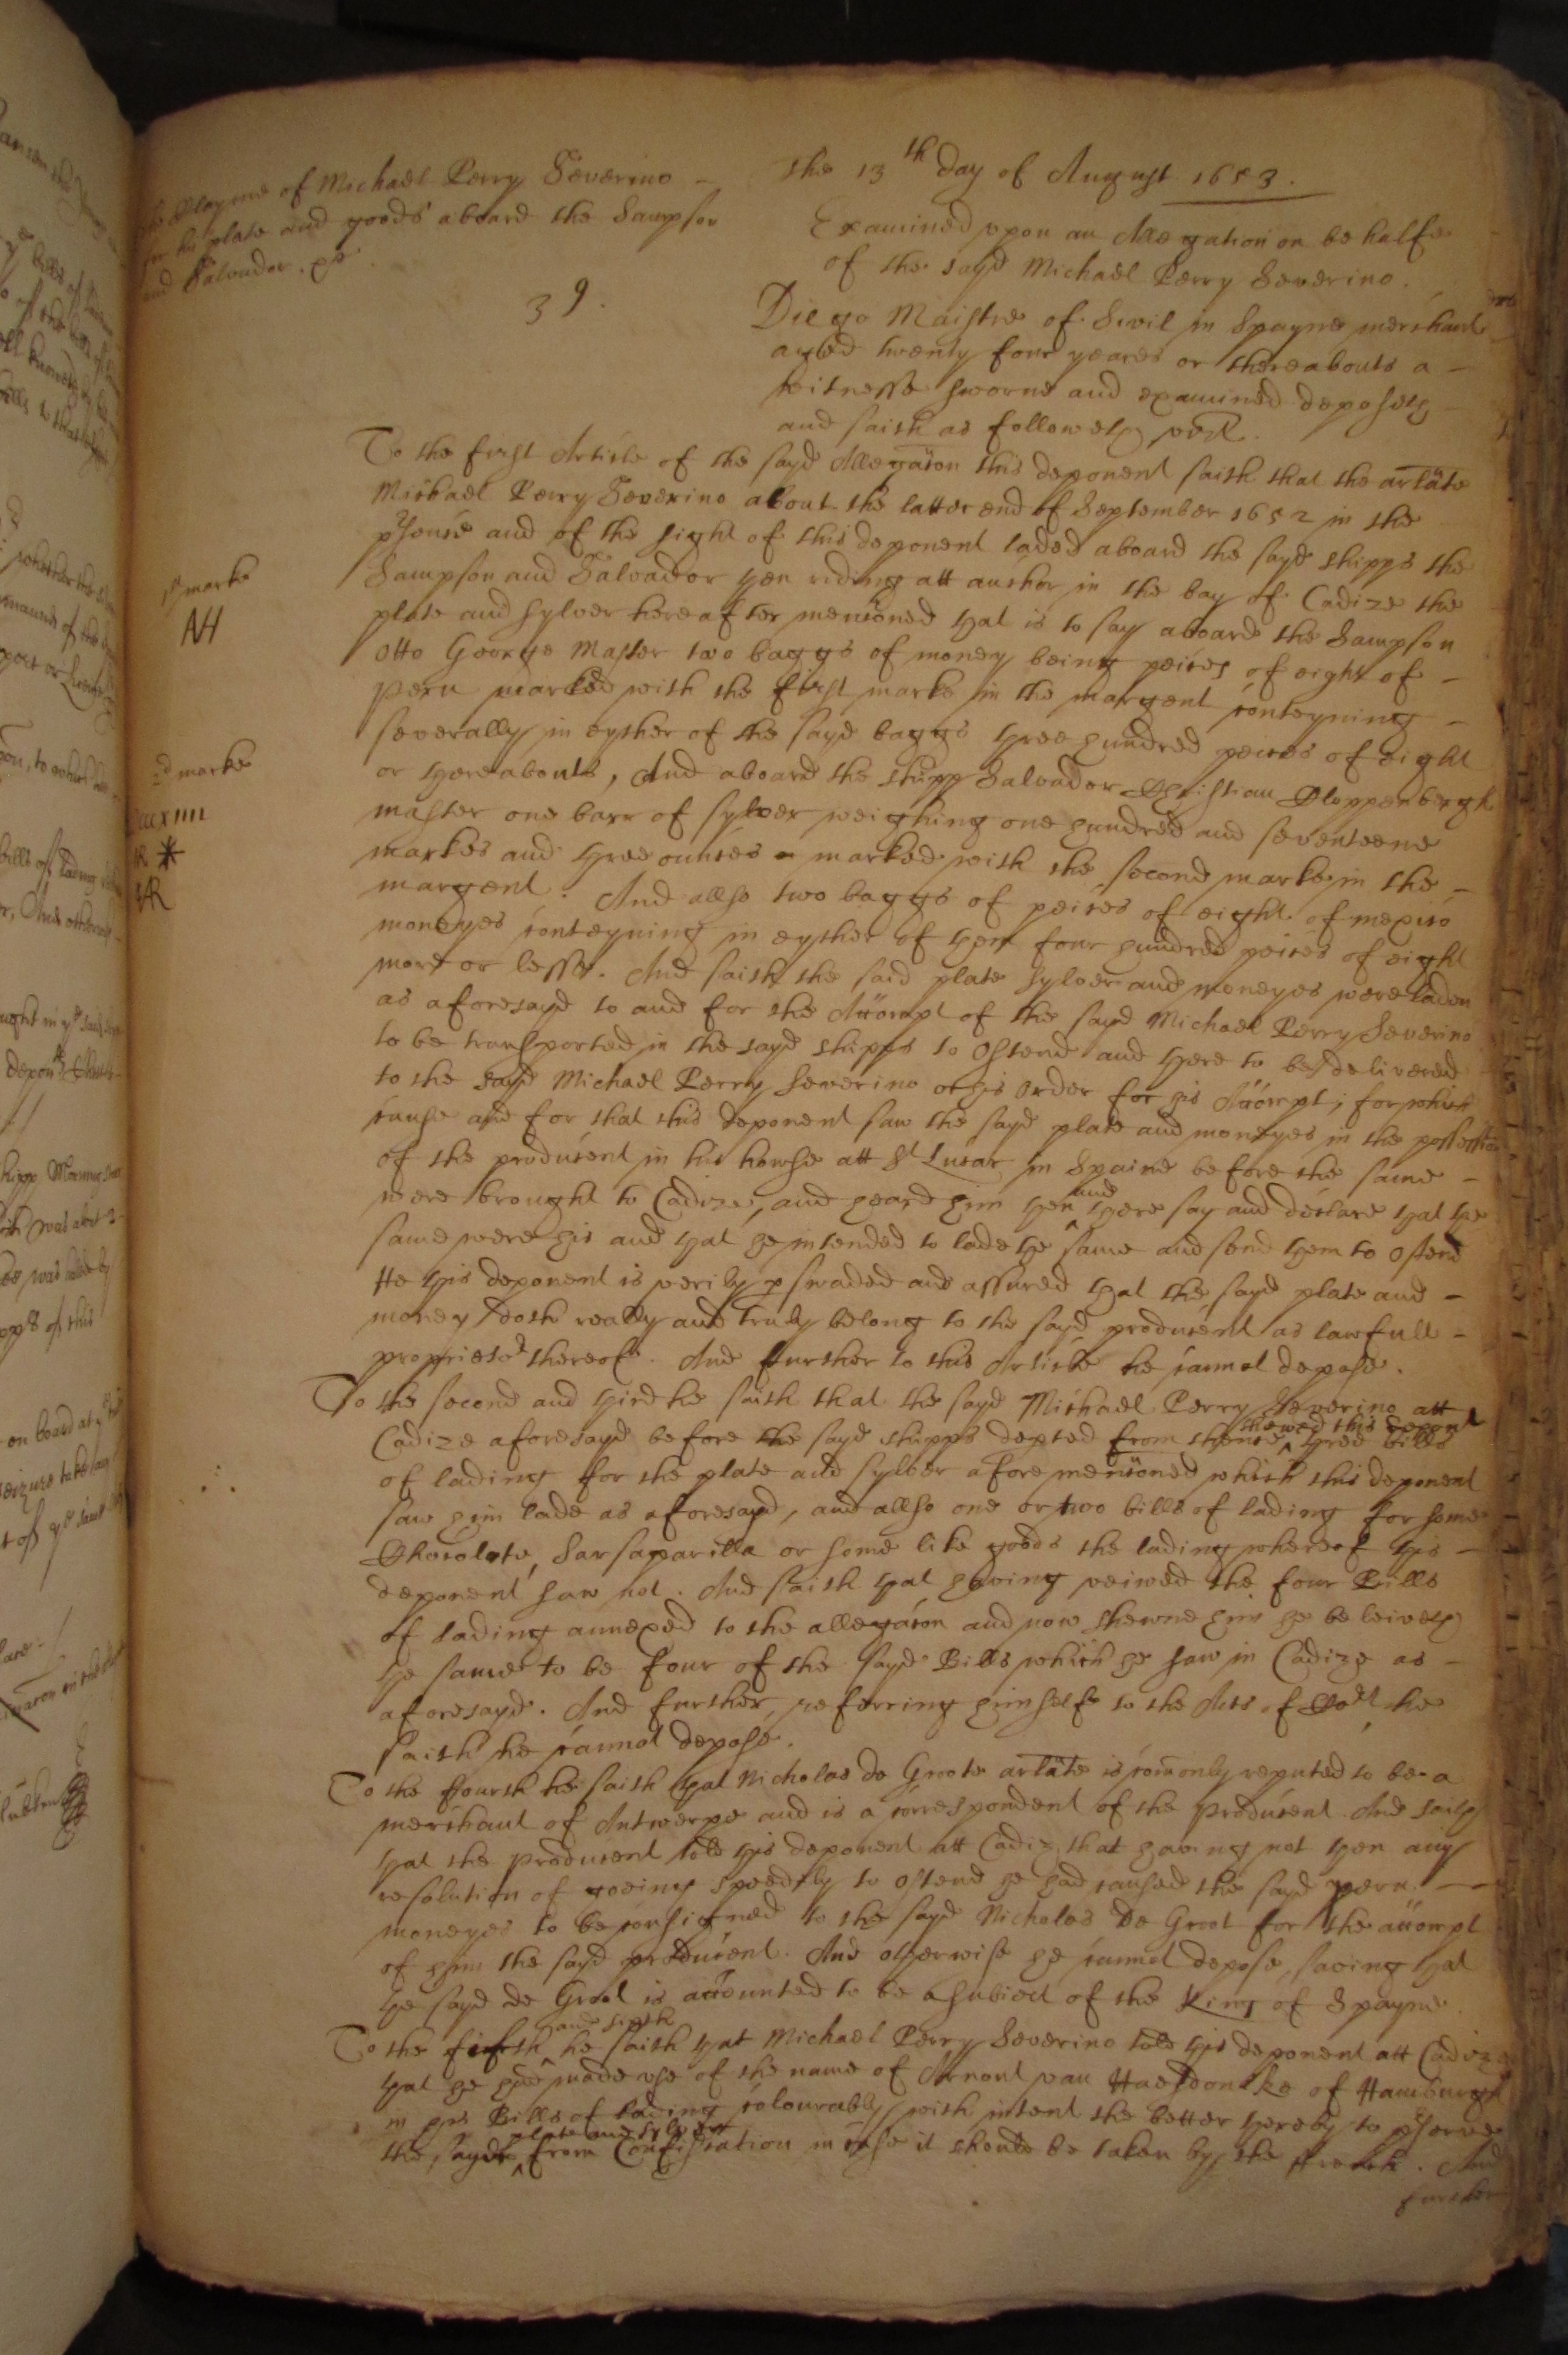 The 13th day of August 1653.
The Clayme of Michael Perry Severino
for his plate and goods aboard the Sampson
and Salvador. &c.
Examined upon an Allegation on behalfe
of the sayd Michael Perry Severino.
39.
Diego Maistre of Sevil in Spayne merchant
aged twenty four yeares or thereabouts a
witnesse sworne and examined deposeth
and saith as followeth vizt.
To the first Article of the sayd Allegacon this deponent saith that the arlate
Michael Perry Severino about the latter end of September 1652 in the
psence and of the sight of this deponent laded aboard the sayd shipps the
Sampson and Salvador then riding att anchor in the bay of Cadize the
plate and sylver hereafter mencioned that is to say aboard the Sampson
Otto George Master two baggs of money being peices of eight of
Peru marked with the first marke in the margent conteyning
severally in eyther of the sayd baggs three hundred peices of eight
or thereabouts, And aboard the shipp Salvador Christian Cloppenburgh
master one barr of sylver weighing one hundred and seventeene
markes and three ounces marked with the second marke in the
margent. And allso two baggs of peices of eight of mexico
moneyes conteyning in eyther of them four hundred peices of eight
more or lesse. And saith the said plate sylver and moneyes were laden
as aforesayd to and for the Accompt of the sayd Michael Perry Severino
to be transported in the sayd shipps to Ostend and there to be delivered
to the sayd Michael Perry Severino or his order for his Accompt; for which
cause and for that this deponent saw the sayd plate and moneyes in the possession
of the producent in his howse att St Lucar in Spaine before the same
were brought to Cadize, and heard him then and there say and declare that the
same were his and that he intended to lade the same and send them to Ostend
He this deponent is verily pswaded and assured that the sayd plate and
money doth really and truly belong to the sayd producent as lawfull
proprietor thereof. And further to this Article he cannot depose.
To the second and third he saith that the sayd Michael Perry Severino att
Cadize aforesayd before the sayd shipps depted from thence shewed this deponent three bills
of lading for the plate and sylver afore mencioned which this deponent
saw him lade as aforesayd, and allso one or two bills of lading for some
Chocolate, Sarsaparilla or some like goods the lading whereof this
deponent saw not. And saith that having veiwed the four Bills
of lading annexed to the allegacon and now shewne him he beleiveth
the same to be four of the sayd Bills which he saw in Cadize as
aforesayd. And further, referring himselfe to the Acts of Cort he
saith he cannot depose.
To the fourth he saith that Nicholas de Groote arlate is comonly reputed to be a
merchant of Antwerpe and is a correspondent of the producent. And saith
that the producent told this deponent att Cadiz that having not then any
resolution of goeing speedily to Ostend he had caused the sayd peru
moneyes to be consigned to the sayd Nicholas De Groot for the accompt
of him the sayd producent. And otherwise he cannot depose, saving that
the sayd de Groot is accounted to be a subiect of the King of Spayne.
To the fifth and sixth he saith that Michael Perry Severino told this deponent att Cadize
that he had made use of the name of Arnout van Haesdoncke of Hamburgh
in his Bills of lading colourably with intent the better thereby to pserve
the sayd plate and sylver from Confiscation in case it should be taken by the ffrench. And
further
1st marke
NH
2d marke